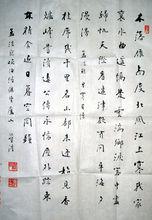 木落雁南度北風江上寒我家
襄水曲遥隔楚雲端鄉淚客中盡
歸帆天際看迷津欲有問平海夕
漫漫
千里名山都未逢
見香
爐峰嘗讀遠公傳永懷塵外踪東
林精舍近日暮空聞鐘
孟浩然晚泊潯陽望廬山